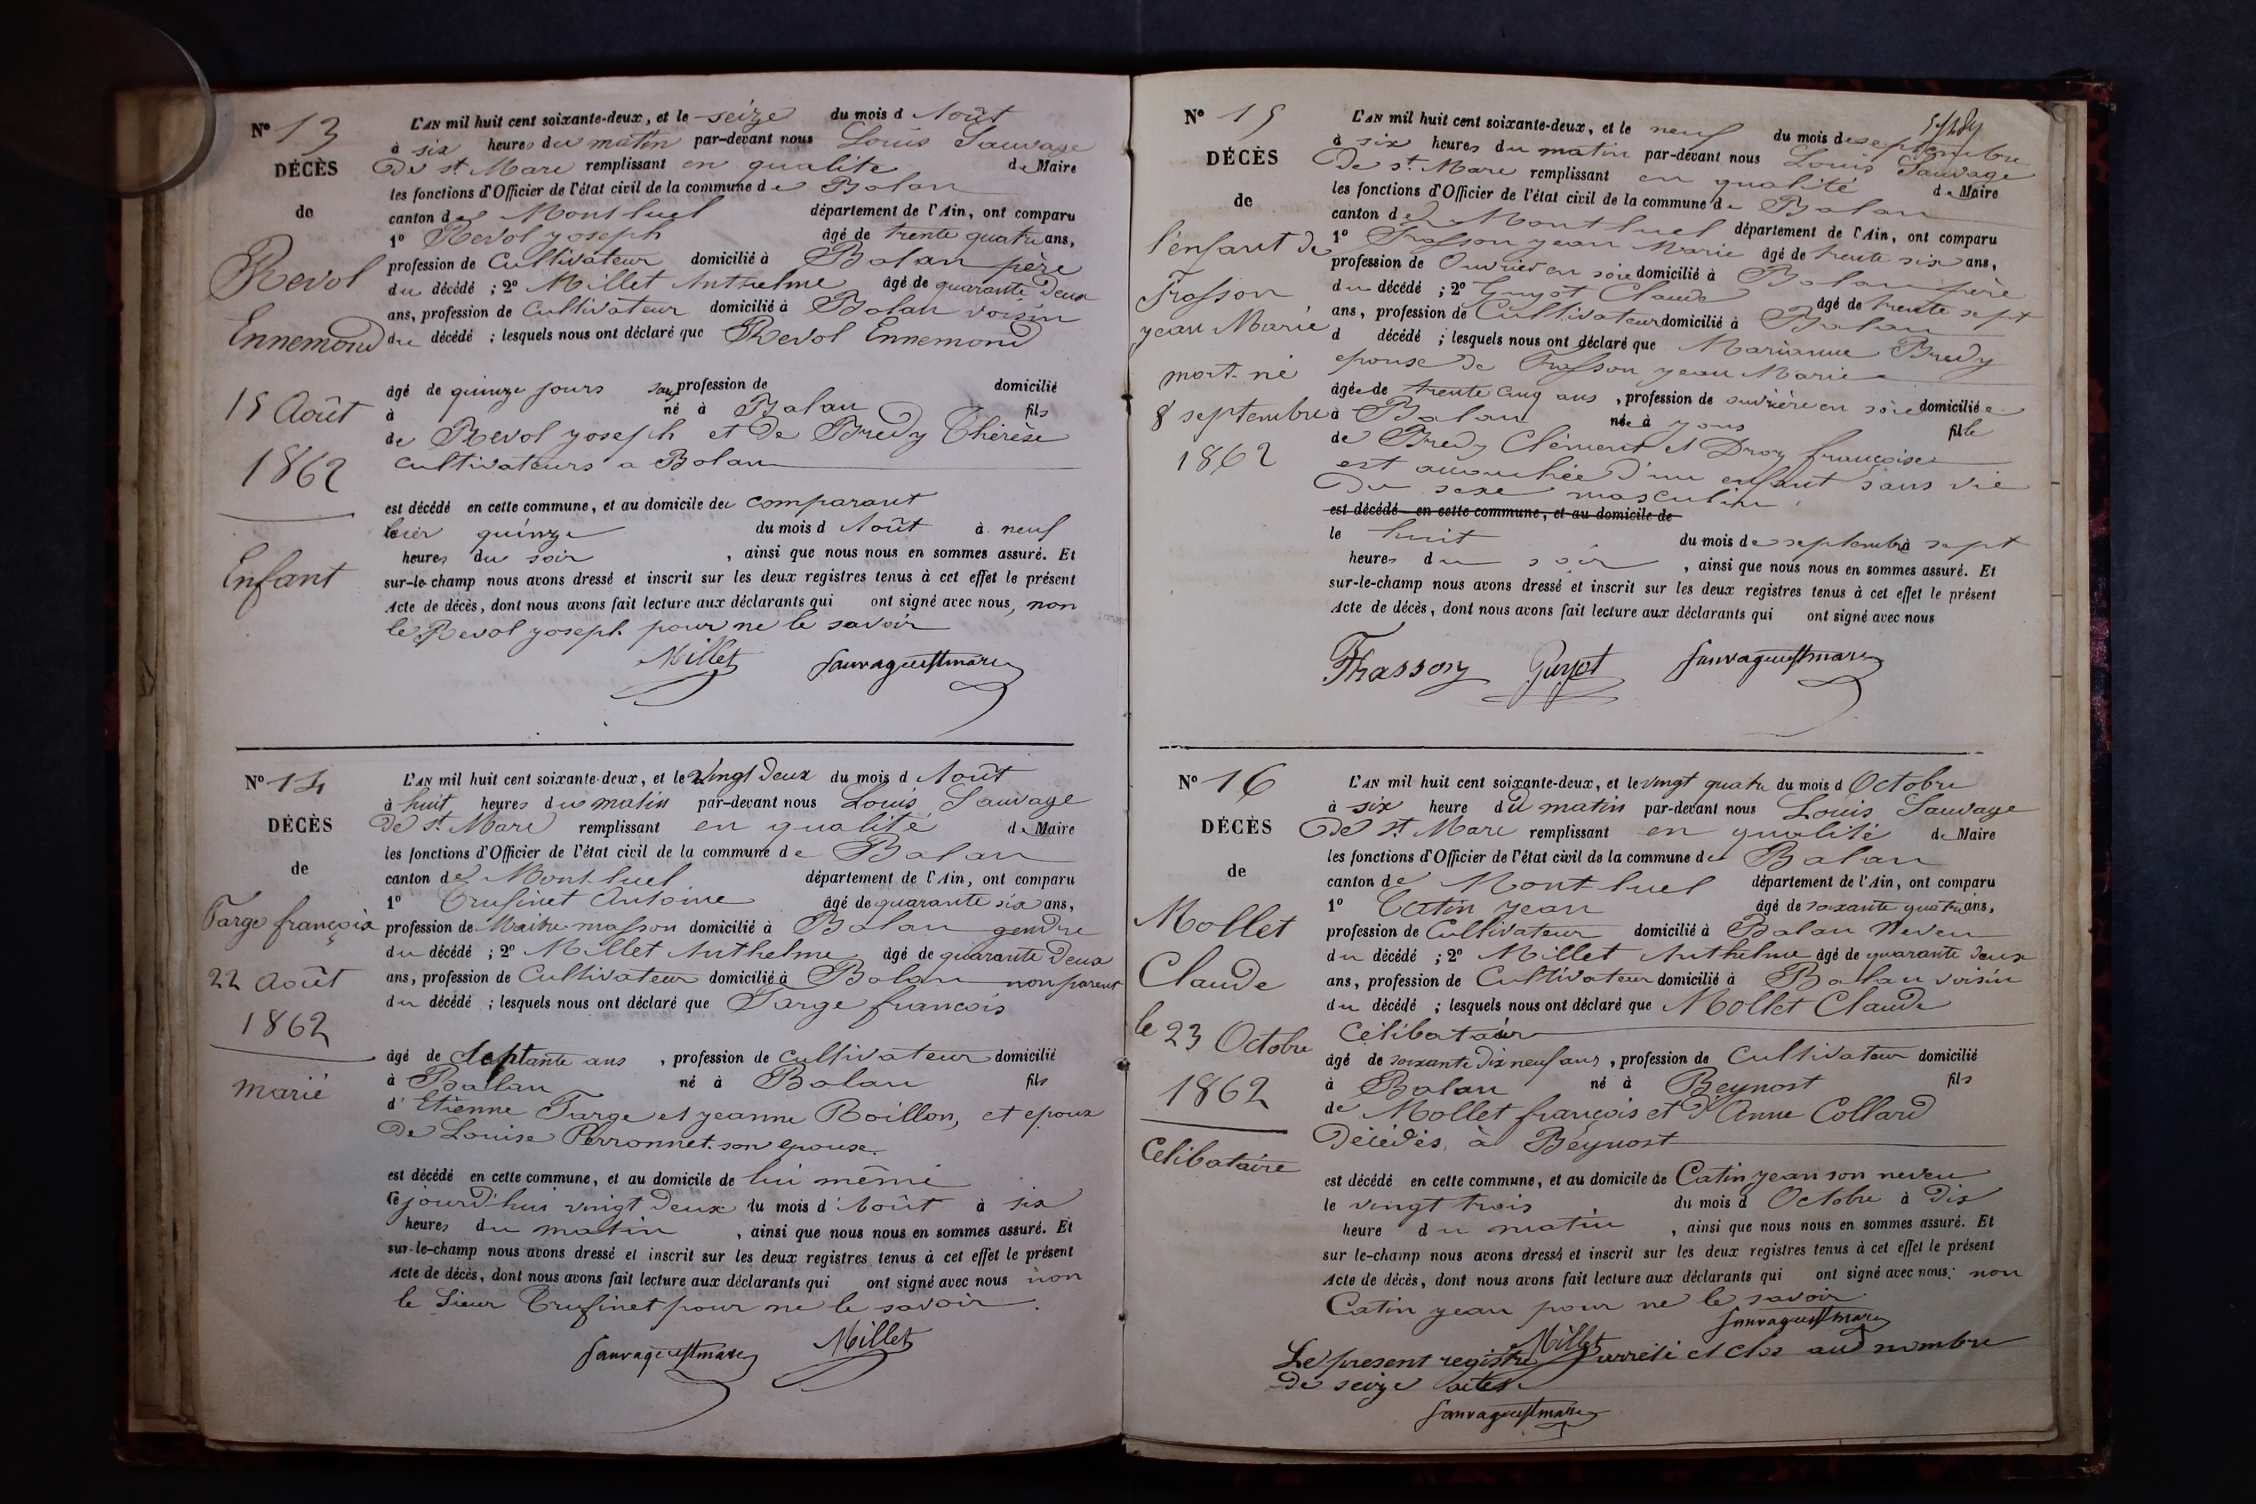 N° 13
DÉCÈS
de
Revol
Ennemond
15 Août
1862
Enfant
L'AN mil huit cent soixante-deux, et le seize du mois d Août
à six heures du matin par-devant nous Louis Sauvage
De st Mare remplissant en qualite de Maire
les fonctions d'Officier de l'état civil de la commune de Balan
canton de Montluel département de l'Ain, ont comparu
1° Revol yoseph âgé de trente quatre ans,
profession de Cultivateur domicilié à Balan père
du décédé ; 2° Millet Anthelme âgé de quarante Deux
ans, profession de Cultivateur domicilié à Balan voisin
du décédé ; lesquels nous ont déclaré que Revol Ennemond
âgé de quinze jours sans profession de domicilié
à né à Balan fils
de Revol yoseph et De Bredy Thérèse
cultivateurs a Balan
est décédé en cette commune, et au domicile du comparant
hier quinze du mois d Août à neuf
heures du soir , ainsi que nous nous en sommes assuré. Et
sur-le-champ nous avons dressé et inscrit sur les deux registres tenus à cet effet le présent
Acte de décès, dont nous avons fait lecture aux déclarants qui ont signé avec nous, non
le Revol yoseph pour ne le savoir
Millet Sauvage st mare
N° 14
DÉCÈS
de
Targe françois
22 Août
1862
marié
L'AN mil huit cent soixante-deux, et le Vingt Deux du mois d Août
à huit heures du matin par-devant nous Louis Sauvage
De st Mare remplissant en qualité de Maire
les fonctions d'Officier de l'état civil de la commune de Balan
canton de Montluel département de l'Ain, ont comparu
1° Trufinet Antoine âgé de quarante six ans,
profession de Maitre masson domicilié à Balan gendre
du décédé ; 2° Millet Anthelme âgé de quarante Deux
ans, profession de Cultivateur domicilié à Balan non parent
du décédé ; lesquels nous ont déclaré que Targe françois
âgé de Septante ans , profession de cultivateur domicilié
à Balan né à Balan fils
d' Etienne Targe et yeanne Boillon, et epoux
De Louise Perronnet. son epouse.
est décédé en cette commune, et au domicile de lui même
Ce jourd'hui vingt Deux du mois d'Août à six
heures du matin , ainsi que nous nous en sommes assuré. Et
sur-le-champ nous avons dressé et inscrit sur les deux registres tenus à cet effet le présent
Acte de décès, dont nous avons fait lecture aux déclarants qui ont signé avec nous non
le Sieur Trufinet pour ne le savoir.
Sauvage st mare Millet
N° 15
DÉCÈS
de
l'enfant de
Frasson
yean Marie
mort-né
8 septembre
1862
L'AN mil huit cent soixante-deux, et le neuf du mois de septembre
à six heures du matin par-devant nous Louis Sauvage
De st Mare remplissant en qualité de Maire
les fonctions d'Officier de l'état civil de la commune de Balan
canton de Montluel département de l'Ain, ont comparu
1° Frasson yean Marie âgé de trente six ans,
profession de Ouvrier en soie domicilié à Balan père
du décédé ; 2° Guyot Claude âgé de trente sept
ans, profession de Cultivateur domicilié à Balan
d décédé ; lesquels nous ont déclaré que Marianne Bredy
epouse de Frasson yean Marie
âgée de trente cinq ans , profession de ouvrière en soie domiciliée
à Balan née à yons fille
de Bredy Clément et Droy françoise
est accouchée D'un enfant sans vie
Du sexe masculin
est décédé en cette commune, et au domicile de
le huit du mois de septembre à sept
heures du soir , ainsi que nous nous en sommes assuré. Et
sur-le-champ nous avons dressé et inscrit sur les deux registres tenus à cet effet le présent
Acte de décès, dont nous avons fait lecture aux déclarants qui ont signé avec nous
Frasson Guyot Sauvage st mare
N° 16
DÉCÈS
de
Mollet
Claude
le 23 Octobre
1862
Celibataire
L'AN mil huit cent soixante-deux, et le vingt quatre du mois d Octobre
à six heure du matin par-devant nous Louis Sauvage
De st Mare remplissant en qualité de Maire
les fonctions d'Officier de l'état civil de la commune de Balan
canton de Montluel département de l'Ain, ont comparu
1° Catin yean âgé de soixante quatre ans,
profession de Cultivateur domicilié à Balan Neveu
du décédé ; 2° Millet Anthelme âgé de quarante deux
ans, profession de Cultivateur domicilié à Balan voisin
du décédé ; lesquels nous ont déclaré que Mollet Claude
Célibataire
âgé de soixante Dix neuf ans, profession de Cultivateur domicilié
à Balan né à Beynost fils
de Mollet françois et d'Anne Collard
Décédés, à Beynost
est décédé en cette commune, et au domicile de Catin yean son neveu
le vingt trois du mois d Octobre à Dix
heure du matin , ainsi que nous nous en sommes assuré. Et
sur le-champ nous avons dressé et inscrit sur les deux registres tenus à cet effet le présent
Acte de décès, dont nous avons fait lecture aux déclarants qui ont signé avec nous. non
Catin yean pour ne le savoir
Sauvage st mare
Millet
Le present registre arrêté et clos au nombre
De seize actes
Sauvage st mare